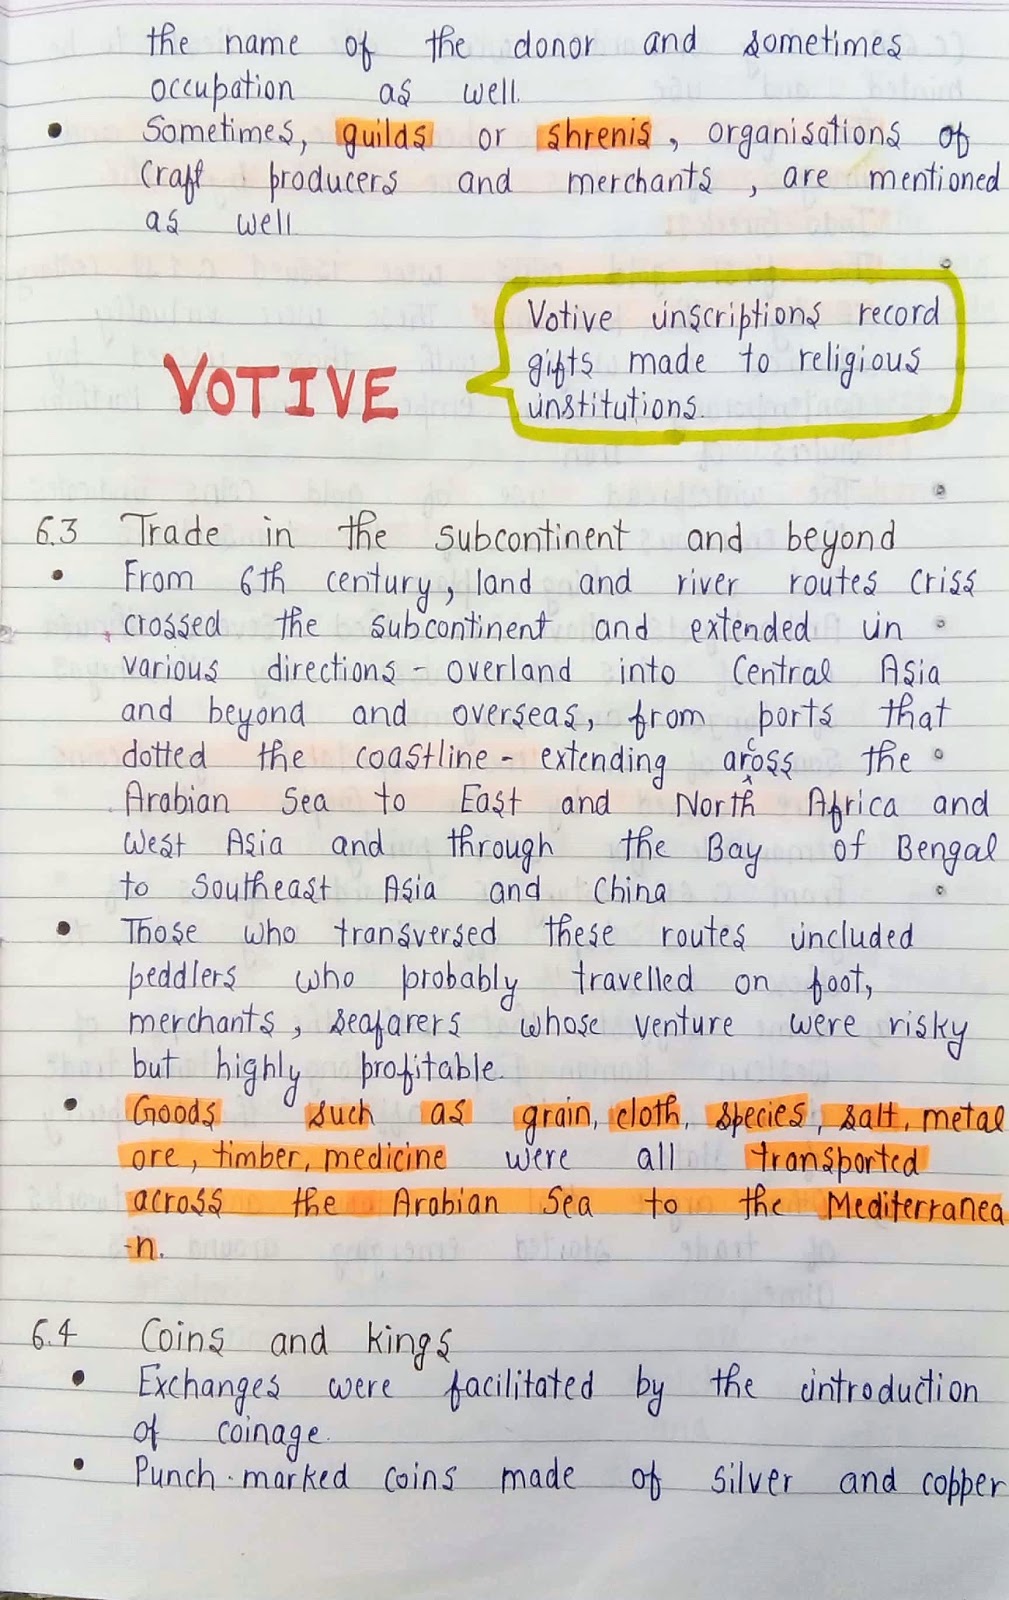 the name of the donor and sometimes
occupation as well.
• Sometimes, guilds or shrenis, organisations of
craft producers and merchants, are mentioned
as well.
VOTIVE
Votive inscriptions record
gifts made to religious
institutions.
6.3 Trade in the subcontinent and beyond
• From 6th century, land and river routes criss
crossed the subcontinent and extended in
various directions - overland into Central Asia
and beyond and overseas, from ports that
dotted the coastline - extending across the
Arabian Sea to East and North Africa and
West Asia and through the Bay of Bengal
to Southeast Asia and China
• Those who transversed these routes included
peddlers who probably travelled on foot,
merchants, seafarers whose venture were risky
but highly profitable.
• Goods such as grain, cloth, species, salt, metal
ore, timber, medicine were all transported
across the Arabian Sea to the Mediterranea
-n.
6.4 Coins and kings
• Exchanges were facilitated by the introduction
of coinage.
• Punch-marked coins made of silver and copper